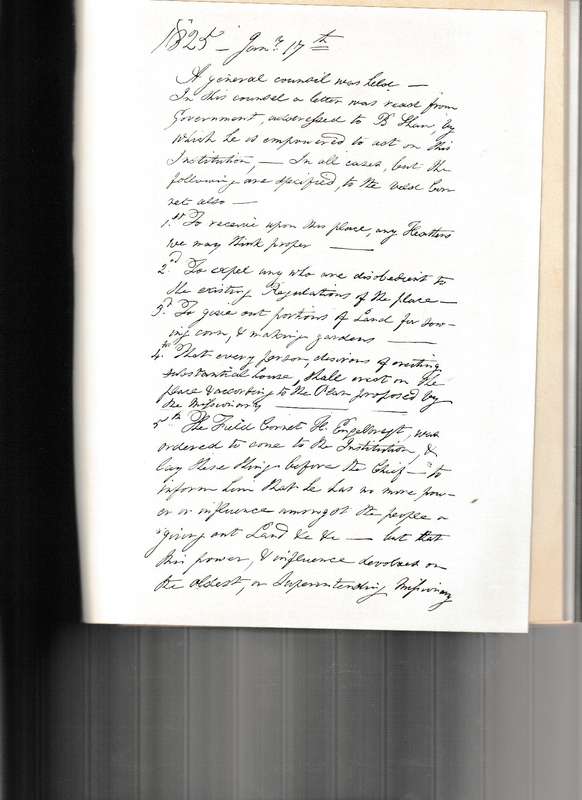 1825 - Jany. 17th
A general council was held —
In this counsel a letter was read from
Government, addressed to B Shaw, by
which he is empowered to act on this
Institution, — In all cases, but the
following are specified, to the Veld Cor
net also —
1.st To receive upon this place, any Heathens
we may think proper —
2.d To expel any who are disobedient to
the existing Regulations of the place —
3.d To give out portions of Land for sow-
ing corn, & making gardens —
4.th That every person, desirous of erecting
substantial house, shall erect on the
place & according to the Plan proposed by
the Missionary —
5th The Field Cornet H. Engelbregt, was
ordered to come to the Institution, &
lay these things before the Chief — "to
inform him that he has no more pow-
er or influence amongst the people
"giving out Land &c &c — but that
this power, & influence devolved on
the oldest, or Superintending Missionary